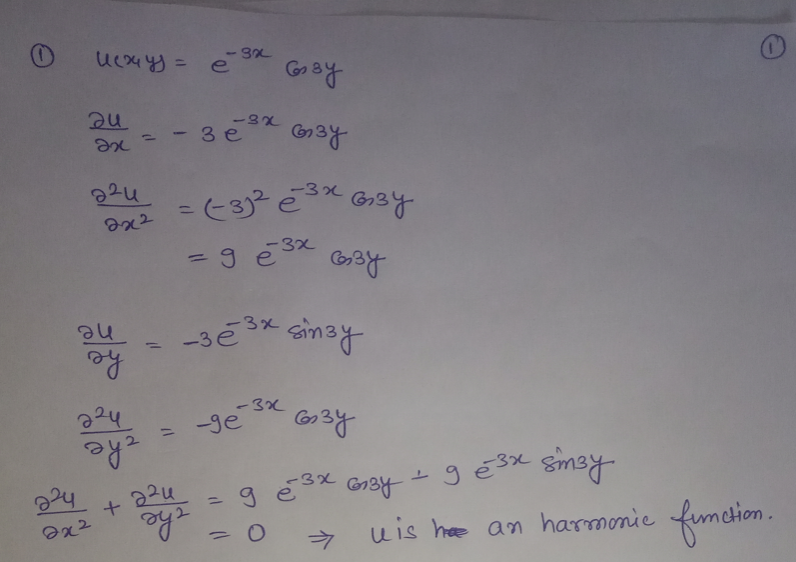 ① u(x,y) = e^{-3x} cos3y ①
∂u/∂x = -3e^{-3x} cos3y
∂²u/∂x² = (-3)² e^{-3x} cos3y
= 9 e^{-3x} cos3y
∂u/∂y = -3e^{-3x} sin3y
∂²u/∂y² = -9e^{-3x} cos3y
∂²u/∂x² + ∂²u/∂y² = 9 e^{-3x} cos3y - 9 e^{-3x} sin3y
= 0 ⇒ u is an harmonic function.